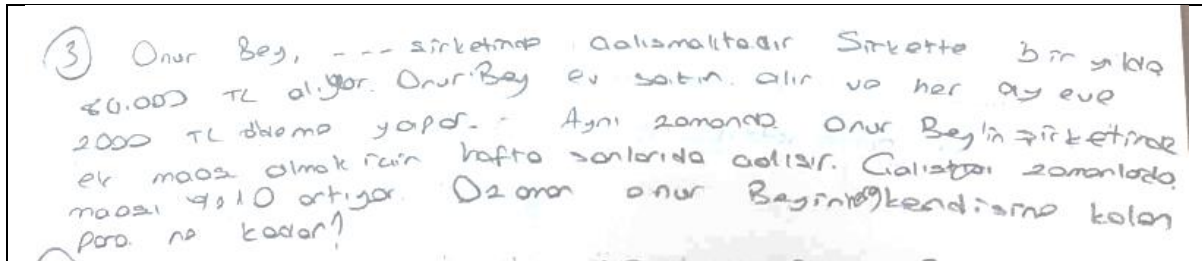 ③ Onur Bey, --- şirketinde çalışmaktadır Şirkette bir yılda
80.000 TL alıyor. Onur Bey ev satın alır ve her ay eve
2000 TL ödeme yapar. Aynı zamanda Onur Bey'in şirketinde
ek maaş almak için hafta sonlarıda çalışır. Çalıştığı zamanlarda
maaşı %10 artıyor. O zaman onur Beyin kendisine kalan
para ne kadar?